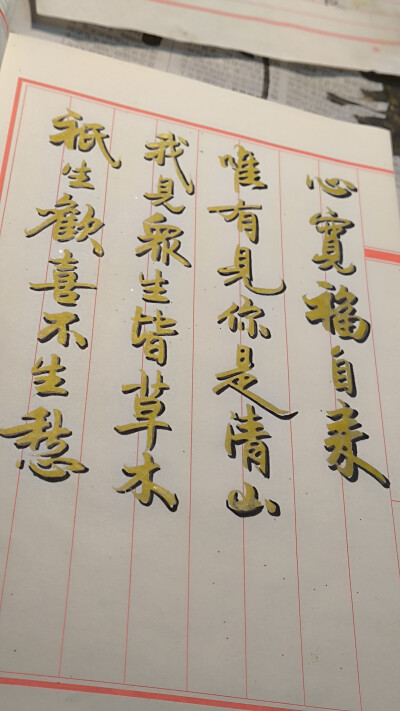 祇生歡喜不生愁
我見衆生皆草木
唯有見你是清山
心寬福自來